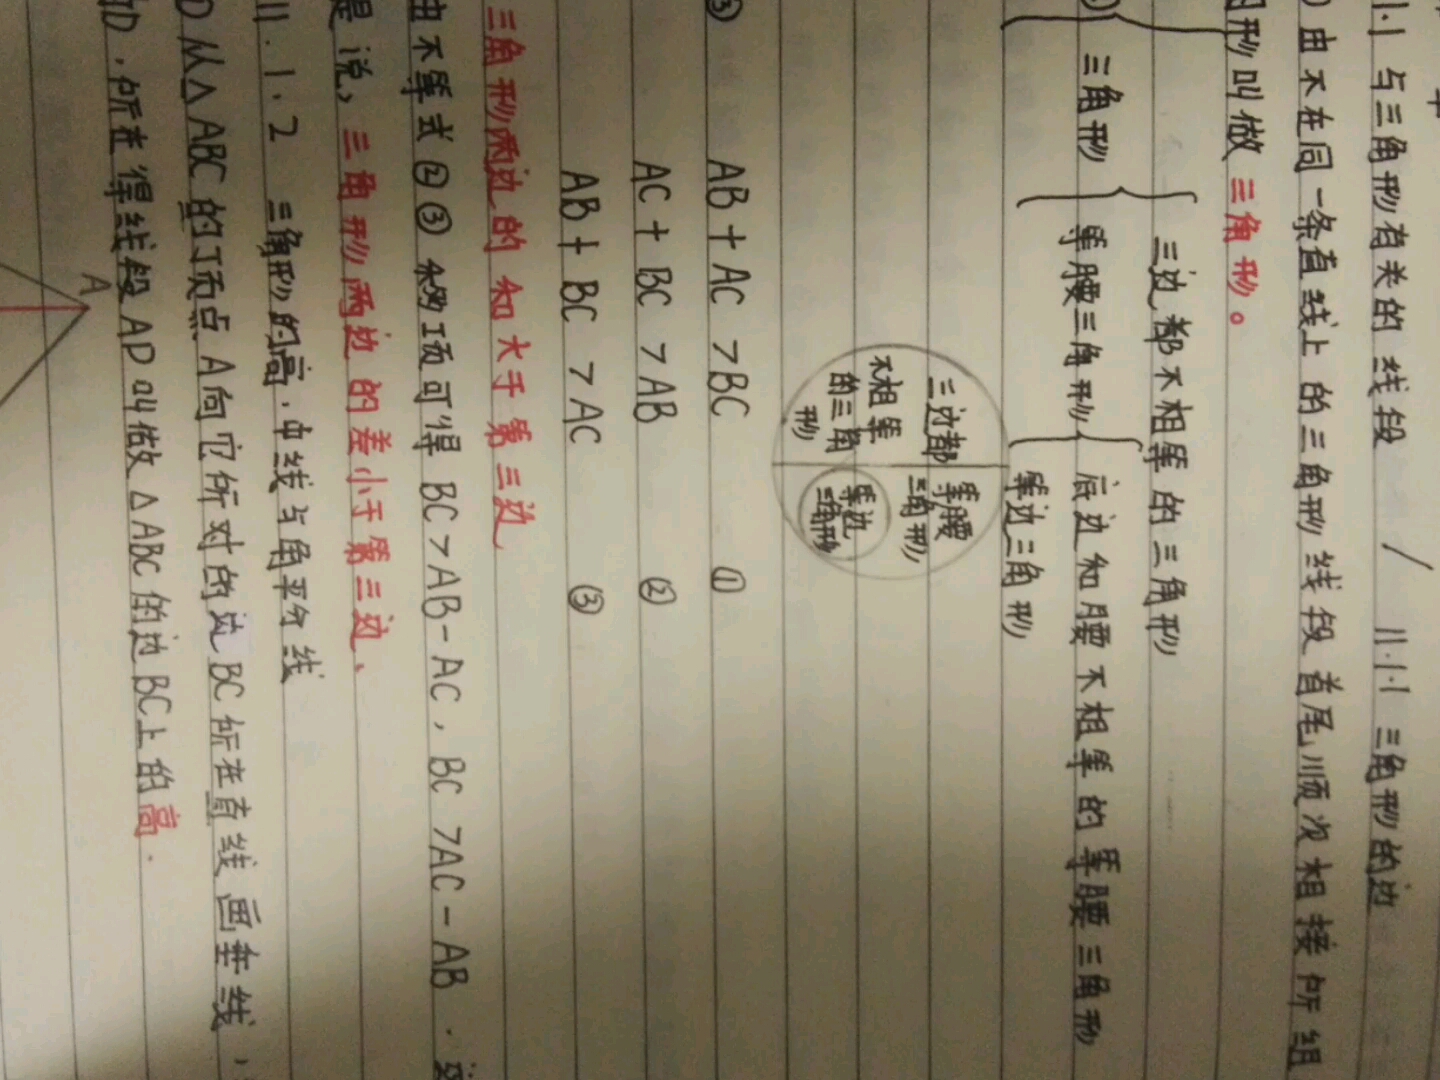 11.1 与三角形有关的线段 / 11.1.1 三角形的边
由不在同一条直线上的三角形线段首尾顺次相接所组
形叫做三角形。
三边都不相等的三角形
三角形 等腰三角形 底边和腰不相等的等腰三角形
等边三角形
三边都
不相等
的三角
形
等腰
三角形
等边
三角形
③ AB+AC>BC ①
AC+BC>AB ②
AB+BC>AC ③
三角形两边的和大于第三边
由不等式②③移项可得 BC>AB-AC,BC>AC-AB.这
是说,三角形两边的差小于第三边、
11.1.2 三角形的高.中线与角平分线
从△ABC的顶点A向它所对的边BC所在直线画垂线,
D.所在得线段AD叫做△ABC的边BC上的高.
A